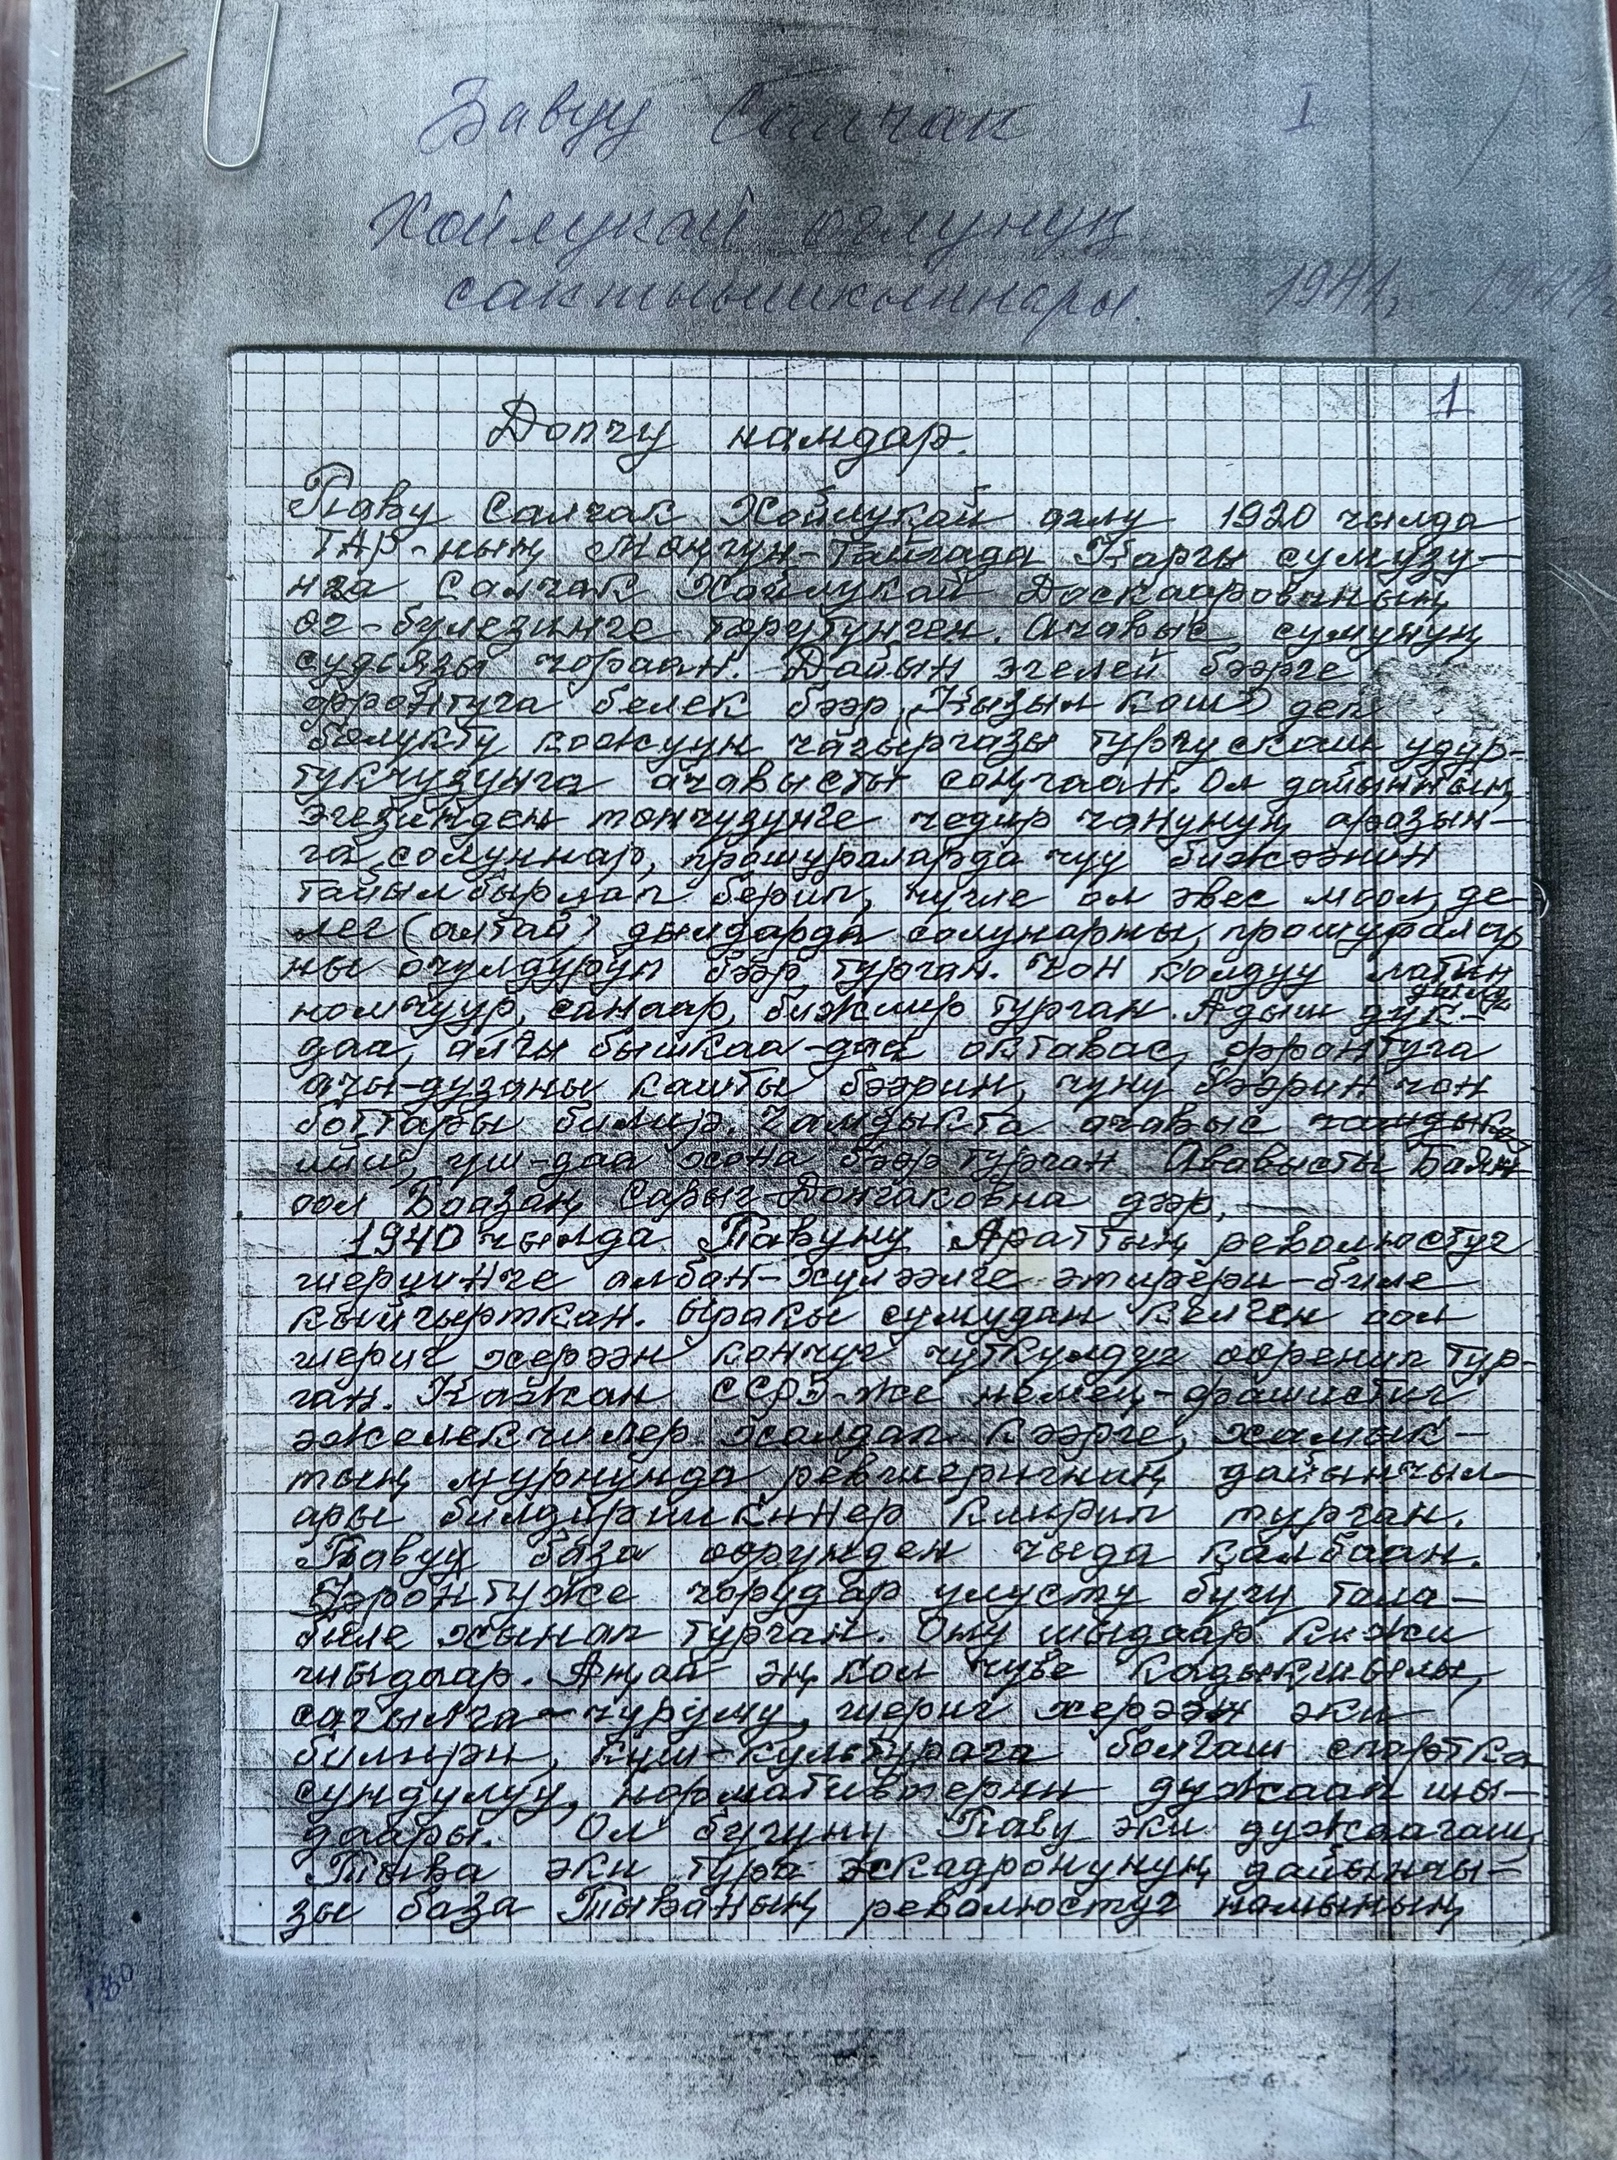 Завуу Салчак I
Хойлукай оглунуң
сактыышкыннары. 1941 - 1944
1
Допчу намдар.
Таву Салчак Хойлукай оглу 1920 чылда
ТАР-ның Мөңгүн-Тайгада Каргы сумузу-
нга Салчак Хойлукай Доскааровичиниң
өг-булезинге төрүтүнген. Ачавыс сумунуң
судьязы чораан. Дайын эгелей бээрге
фронтуга белек бээр "Кызыл кош" деп
болукту кожуун чагыргазы тургускаш удур-
тукчузунга ачавысты соңгаан. Ол дайынның
эгезинден төнчүзүнге чедир чонунуң аразын-
га солуннар, прошураларда чуу бижээнин
тайылбырлап берип, чугле ол эвес моол, де-
лег (алтай) дылдарда солунарны, прошуралар-
ны очулдуруп бээр турган. Чон колдуу латин
номчуур, санаар, бижиир турган. Адыш дүк-
даа, алгы бышкаа-даа октавас, фронтуга
ачы-дузаны кашты бээрин, чуну бээрин чон
боттары билир. Чамдыкта ачавыс
ийи, үш-даа хона бээр турган Ававысты Баян-
оол Боазаң Сарыг-Донгаковна дээр.
1940 чылда Тавуну Араттың революстуг
шериинге албан-хүлээлге эттирери-биле
кыйгырткан. Ыракы сумудан келген оол
шериг херээн кончуг чүткүлдүг өөренип тур-
ган. Кажан ССРЭ-же немец-фашистиг
эжелекчилер халдап кээрге, хамык-
тың мурнунда ревшеригниң дайынчыл-
ары билдиришкиннер киирип турган.
Тавуу база өөрүнден чыда калбаан.
Фронтуже чорудар улусту бүгү тала-
биле хынап турган. Ону шыдаар кижи
шыдаар. Аңаа эң кол чүве кадыкшылы,
сагылга-чуруму, шериг херээн эки
билири, күш-культурага болгаш спортка
сундулуу, нормативтерин дужаап шы-
даары. Ол бүгүнү Таву эки дужаагаш,
Тыва эки тура эскадронунуң дайынчы-
зы база Тываның революстуг намының